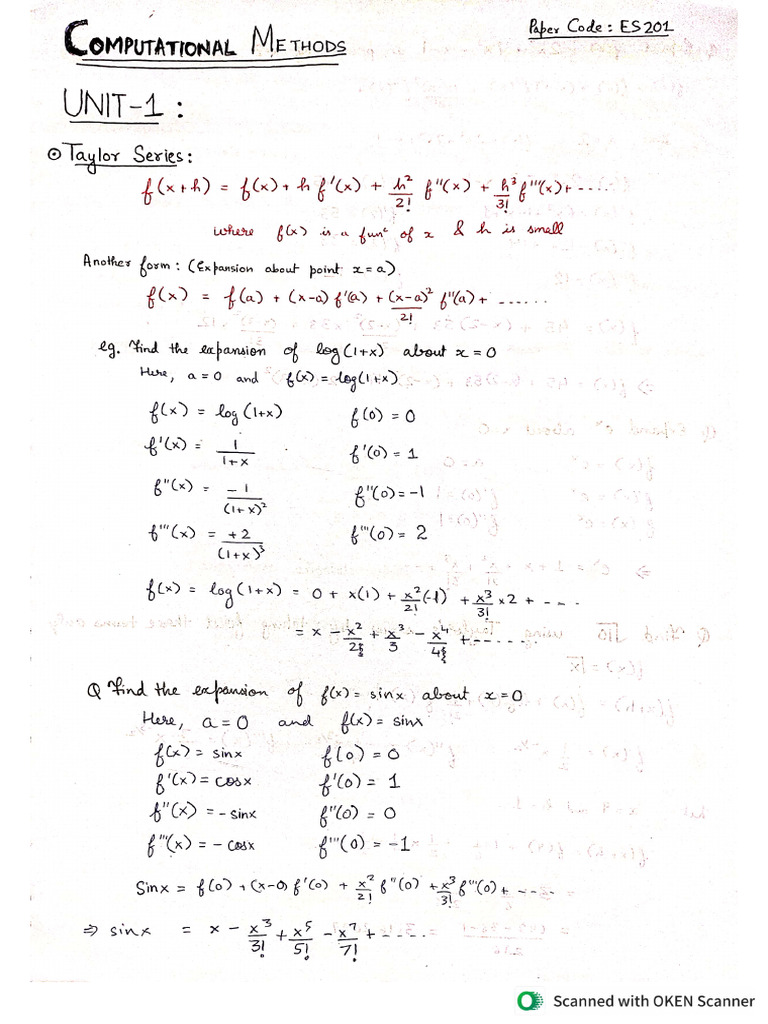 COMPUTATIONAL METHODS
Paper Code: ES201
UNIT-1 :
⊙ Taylor Series:
f(x+h) = f(x) + h f'(x) + h²/2! f''(x) + h³/3! f'''(x) + .....
where f(x) is a funⁿ of x & h is small
Another form: (Expansion about point x=a)
f(x) = f(a) + (x-a) f'(a) + (x-a)²/2! f''(a) + ......
eg. Find the expansion of log(1+x) about x=0
Here, a=0 and f(x) = log(1+x)
f(x) = log(1+x) f(0) = 0
f'(x) = 1/(1+x) f'(0) = 1
f''(x) = -1/(1+x)² f''(0) = -1
f'''(x) = +2/(1+x)³ f'''(0) = 2
f(x) = log(1+x) = 0 + x(1) + x²/2! (-1) + x³/3! x2 + ----
= x - x²/2 + x³/3 - x⁴/4 + -......
Q Find the expansion of f(x) = sinx about x=0
Here, a=0 and f(x) = sinx
f(x) = sinx f(0) = 0
f'(x) = cosx f'(0) = 1
f''(x) = -sinx f''(0) = 0
f'''(x) = -cosx f'''(0) = -1
Sinx = f(0) + (x-0) f'(0) + x²/2! f''(0) + x³/3! f'''(0) + ----
⇒ sinx = x - x³/3! + x⁵/5! - x⁷/7! + -....
Scanned with OKEN Scanner